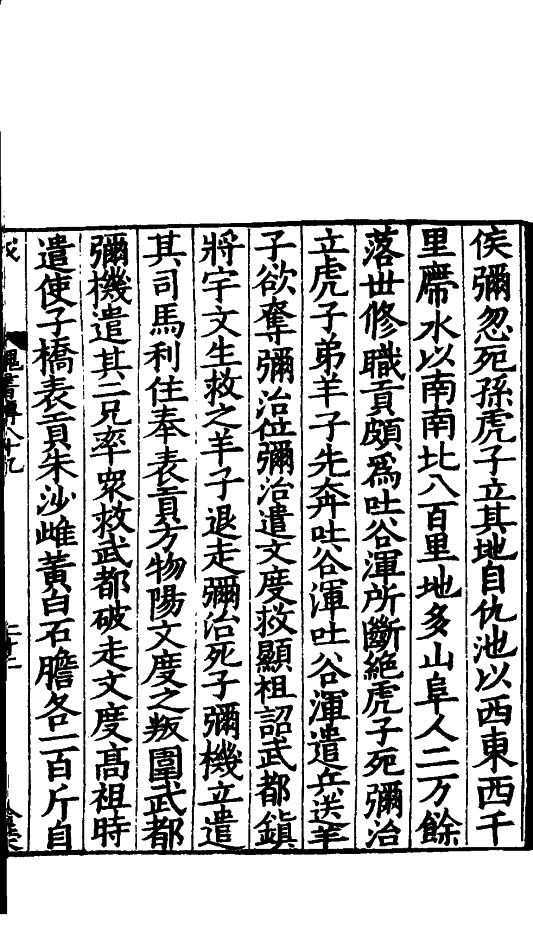 侯彌忽死孫虎子立其地自仇池以西東西千
里廗水以南南北八百里地多山阜人二万餘
落世修職貢頗爲吐谷渾所斷絶虎子死彌治
立虎子弟羊子先奔吐谷渾吐谷渾遣兵送羊
子欲奪彌治位彌治遣文度救顯祖詔武都鎮
將宇文生救之羊子退走彌治死子彌機立遣
其司馬利住奉表貢方物陽文度之叛圍武都
彌機遣其二兄率衆救武都破走文度高祖時
遣使子橋表貢朱沙雌黃白石膽各一百斤自
魏書傳八十九
二十二